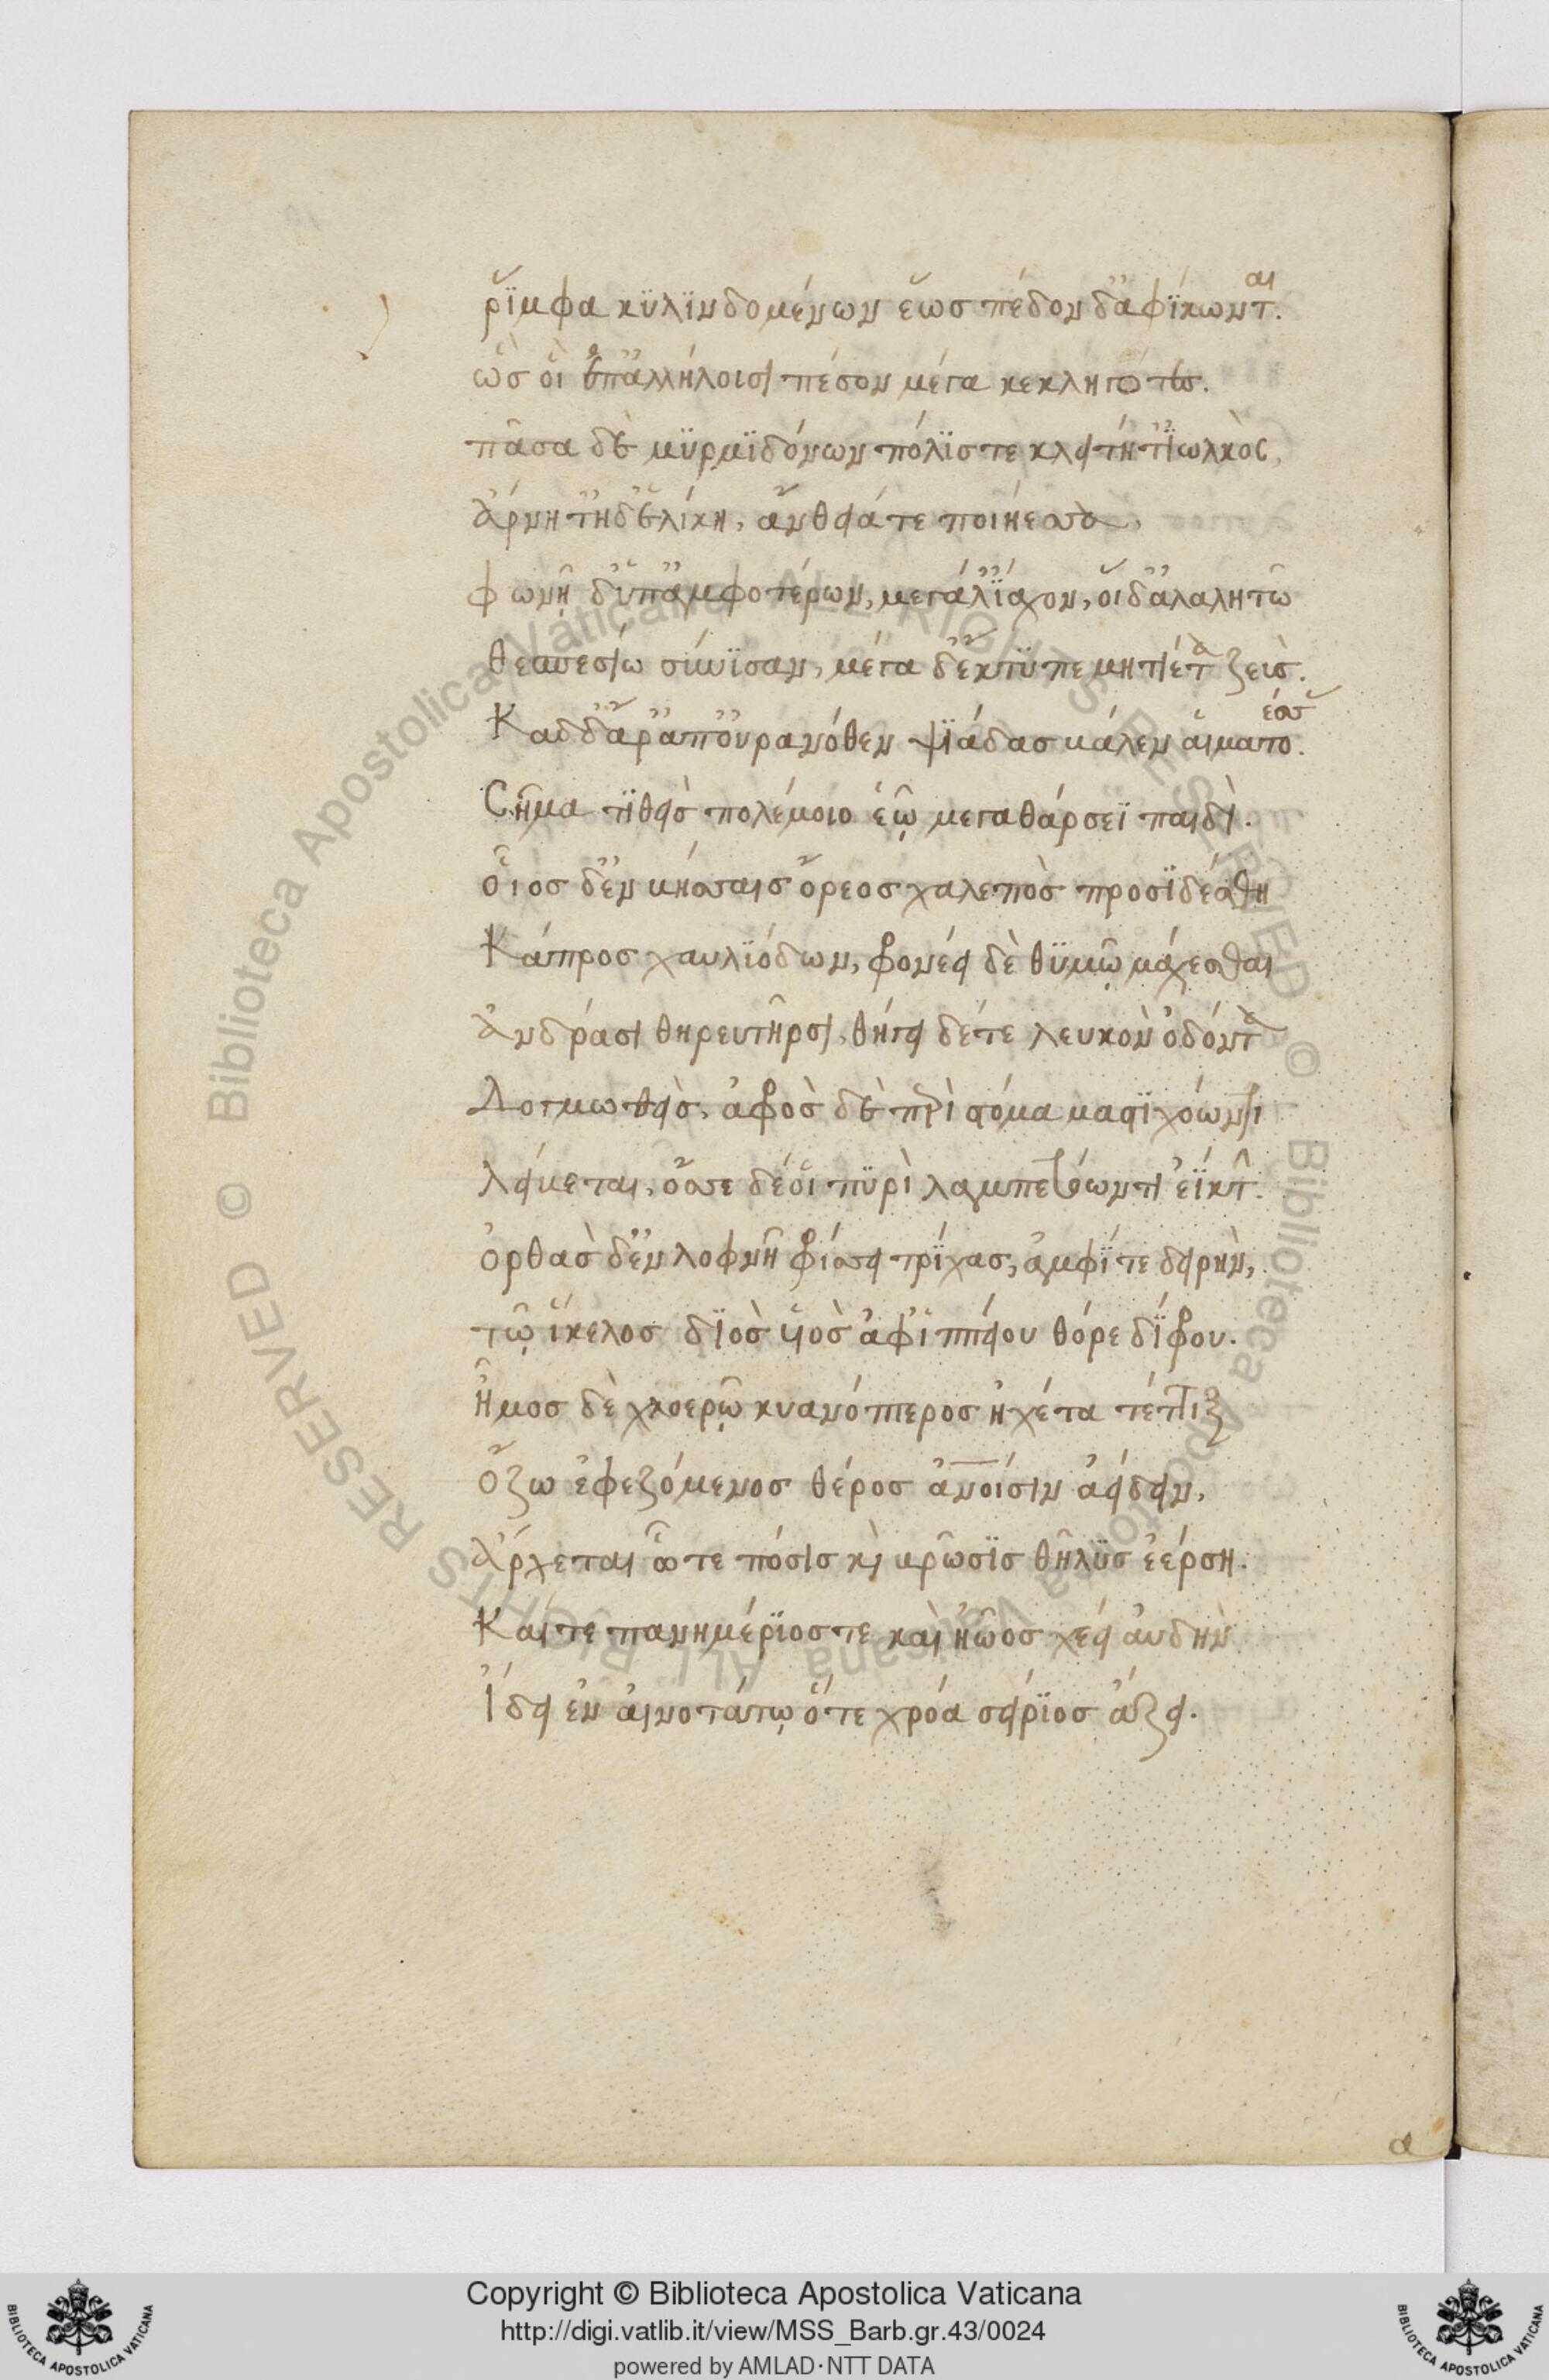 ῥΐμφα κϋλϊνδομένων ἕως πέδον δ' ἀφΐκωνται.
ὣς οἳ ἐπ' ἀλλήλοισι πέσον μέγα κεκληγότες.
πᾶσα δὲ μϋρμϊδόνων πόλϊς τε κλειτή τ' ἰωλκὸς,
Ἄρνη τ' ἠδ' ἑλίκη, ἄνθειά τε ποιήεσσα,
φωνῇ δ' ὑπ' ἀμφοτέρων, μεγάλ' ΐαχον, οἱ δ' ἀλαλητῶ
θεσπεσίω σύνϊσαν, μέγα δ' ἔκτϋπε μητίετα ζεύς.
Καδδ' ἄρ' ἀπ' οὐρανόθεν ψϊάδας βάλεν αἱματοέσσας.
Σῆμα τϊθεὶς πολέμοιο ἑῷ μεγαθάρσεϊ παιδί.
οἷος δ' ἐν βήσσαις ὄρεος χαλεπὸς προσϊδέσθαι
Κάπρος χαυλϊόδων, φρονέει δὲ θϋμῷ μάχεσθαι
Ἀνδράσι θηρευτῆρσι, θήγει δέ τε λευκὸν ὀδόντα
Δοχμωθεὶς, ἀφρὸς δὲ περὶ στόμα μαστϊχόωντι
λείβεται, ὄσσε δέ οἱ πϋρὶ λαμπετόωντι ἐΐκτην.
ὀρθὰς δ' ἐν λοφϊῇ φρίσσει τρίχας, ἀμφΐ τε δειρὴν,
τῷ ἴκελος δϊὸς υἱὸς ἀφ' ἱππείου θόρε δΐφρου.
Ἦμος δὲ χλοερῷ κυανόπτερος ἠχέτα τέττιξ
Ὄζω ἐφεζόμενος θέρος ἀνθρώποισιν ἀείδειν,
Ἄρχεται ὧ τε πόσις καὶ βρῶσϊς θῆλϋς ἐέρση.
Καί τε πανημέρϊός τε καὶ ἠῶος χέει ἀυδὴν
Ἴδει ἐν αἰνοτάτῳ ὅτε χρόα σείρϊος ἄζει.
α
Copyright © Biblioteca Apostolica Vaticana
http://digi.vatlib.it/view/MSS_Barb.gr.43/0024
powered by AMLAD·NTT DATA